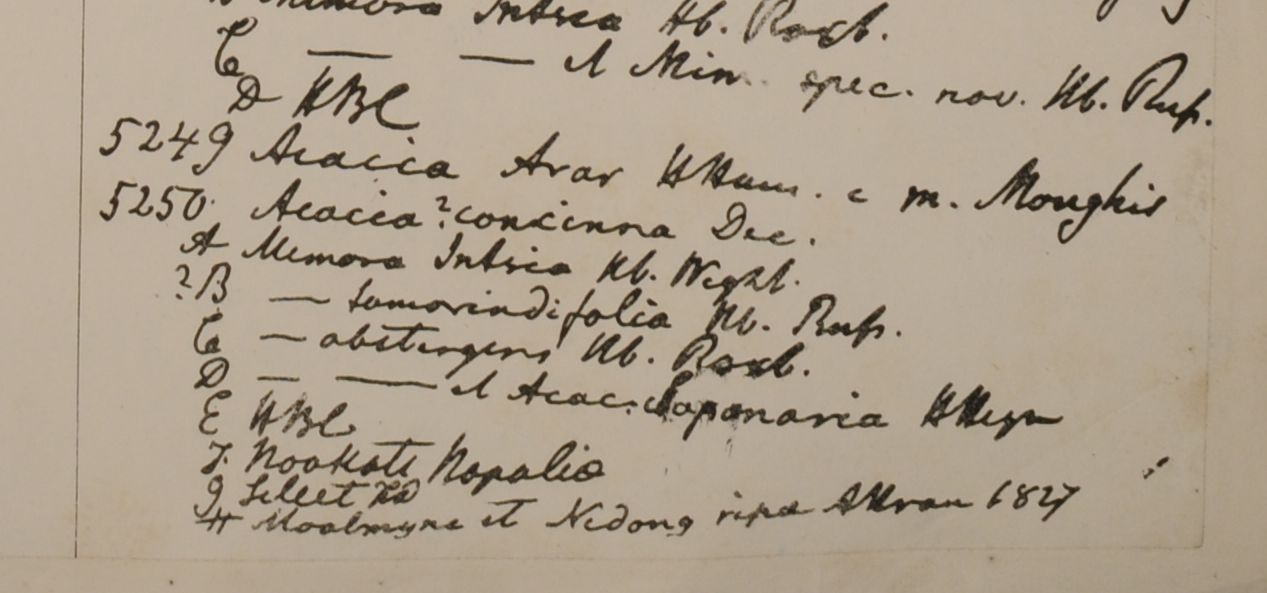 Mimosa Intsia Hb. Roxb.
C — — et Mim. spec. nov. Hb. Russ.
D HBC
5249 Acacia Arar HHam. e m. Monghir
5250. Acacia? concinna Dec.
A Memosa Intsia Hb. Wight.
?B — tamarindifolia Hb. Russ.
C — abstergens Hb. Roxb.
D — — et Acac. Saponaria HHeyn
E HBC
F. Noakote Napalia
G Sillet FD
H Moalmyne et Nedong ripa Attran 1827